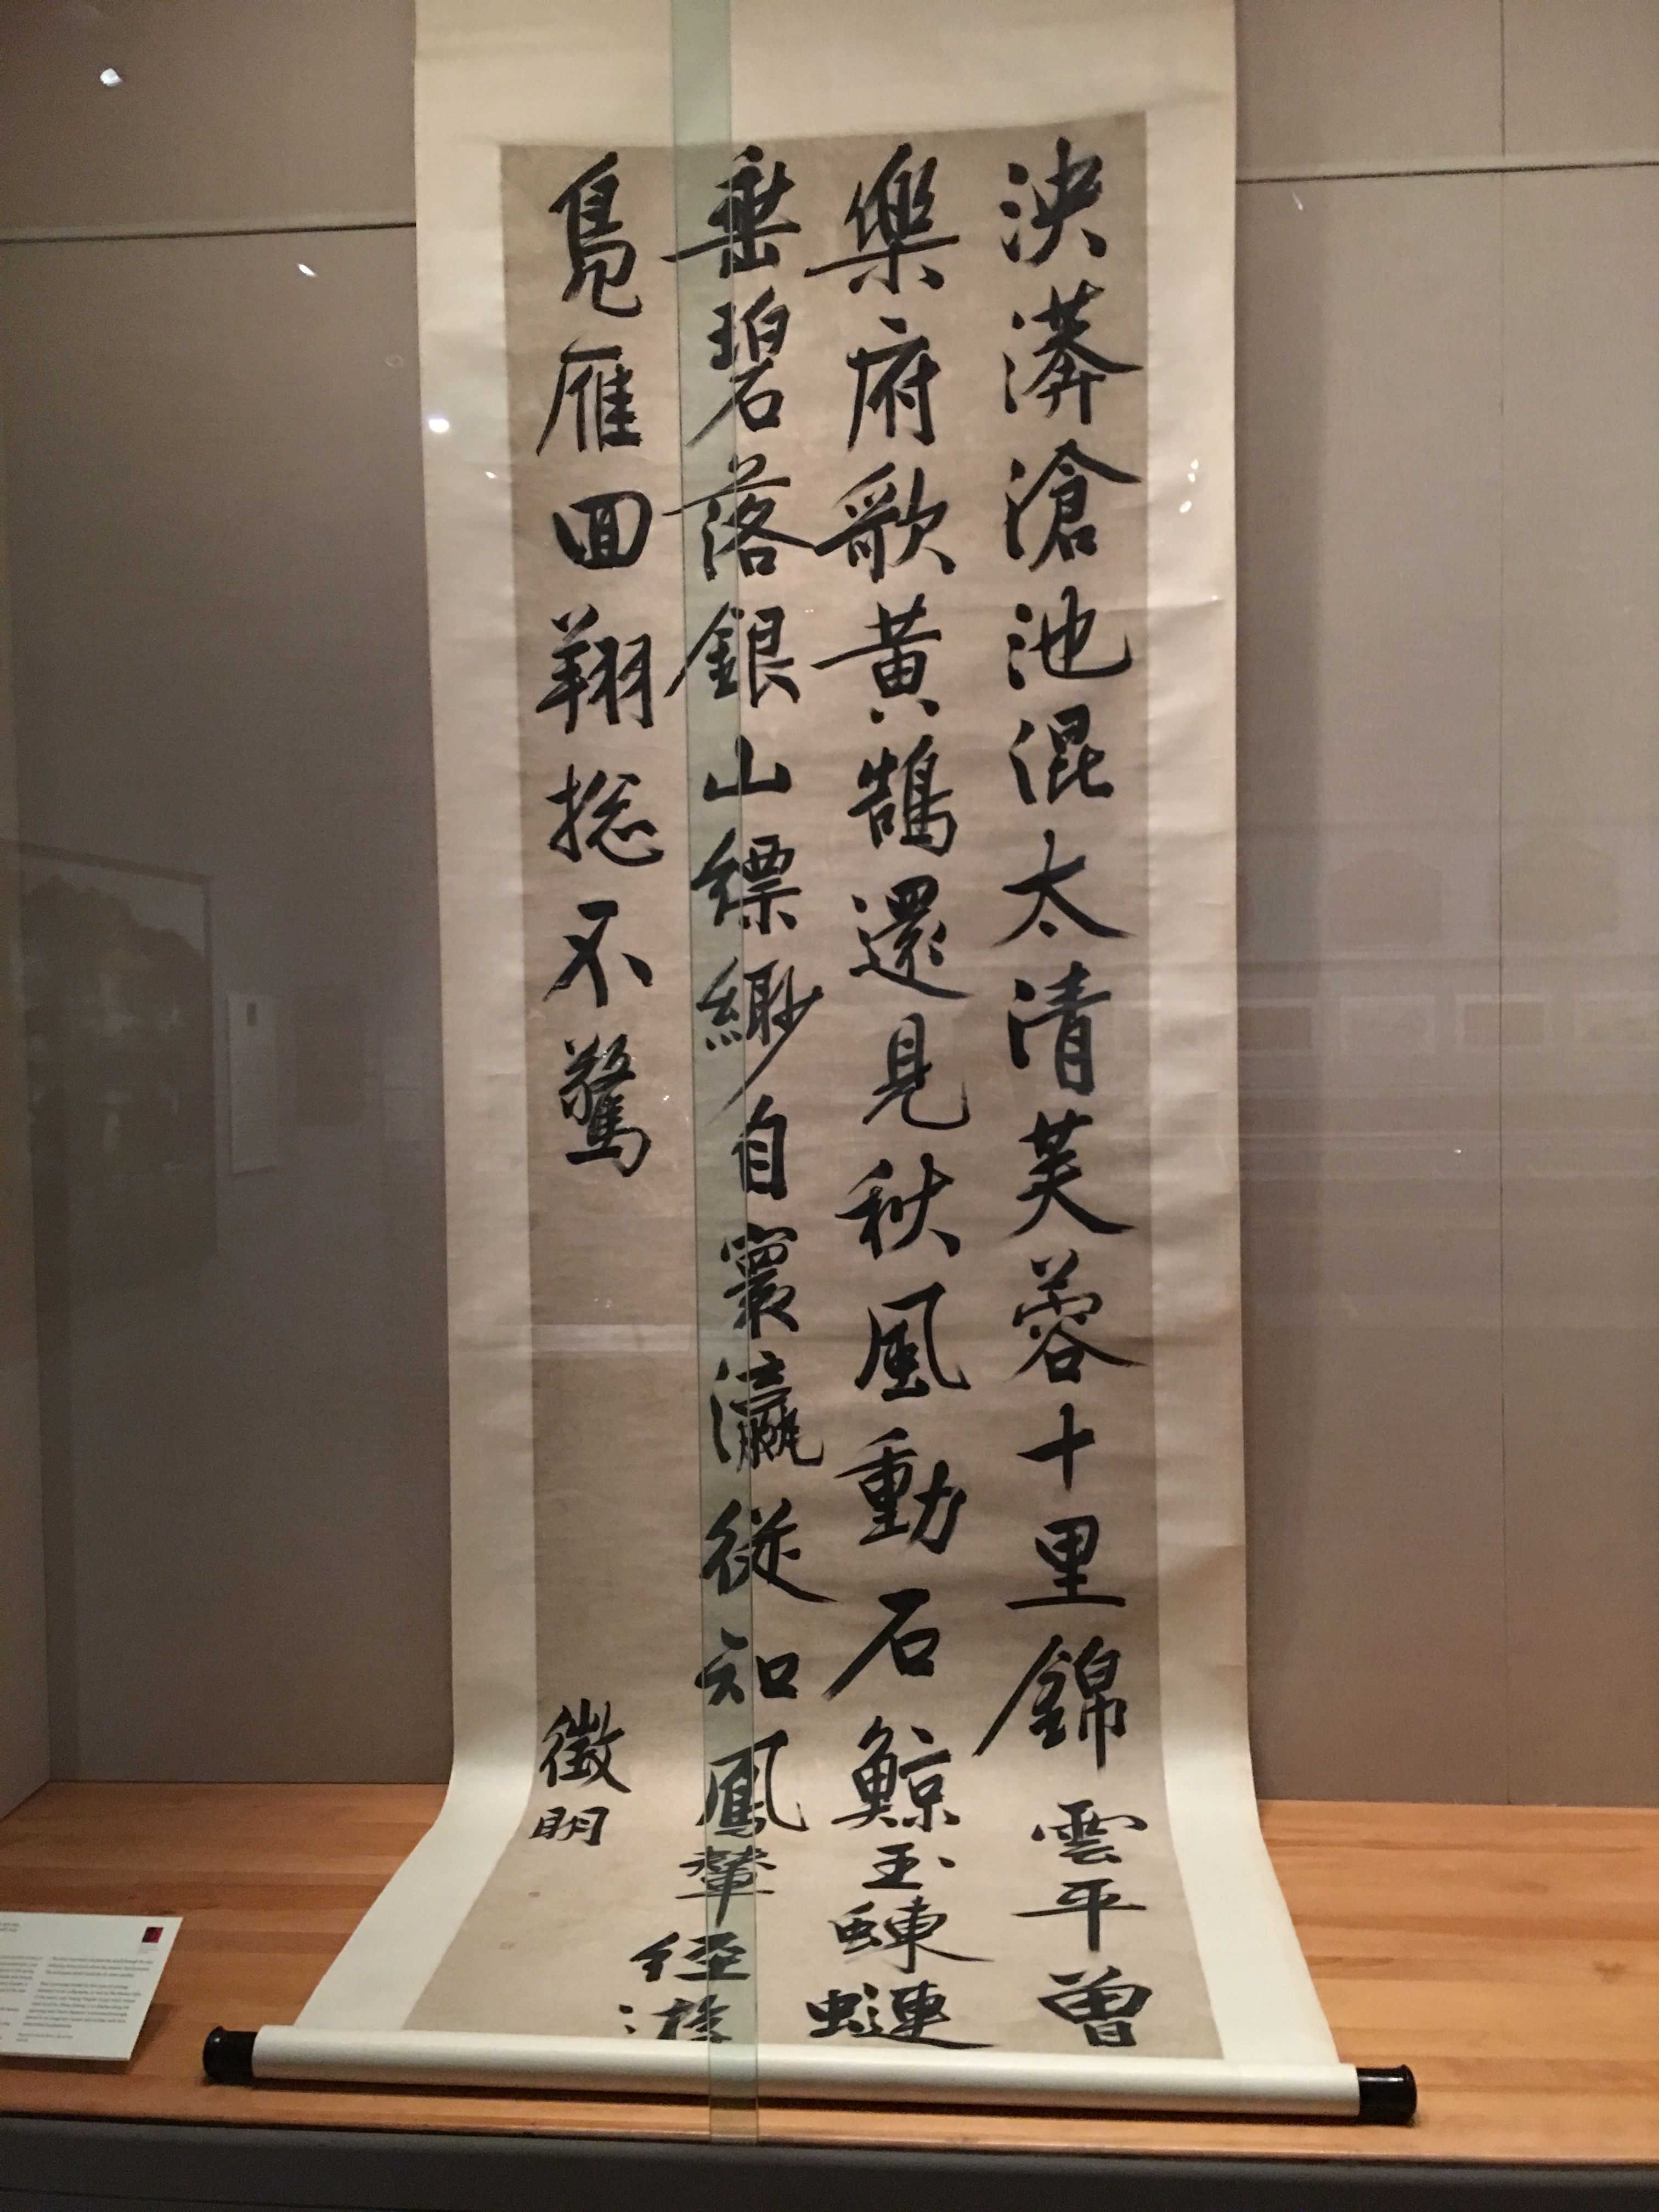 泱漭滄池混太清芙蓉十里錦雲平曾
樂府歌黃鵠還見秋風動石鯨玉蝀蜒
垂碧落銀山縹緲自寰瀛從知鳳輦經游
鳧雁回翔揔不驚
徵明